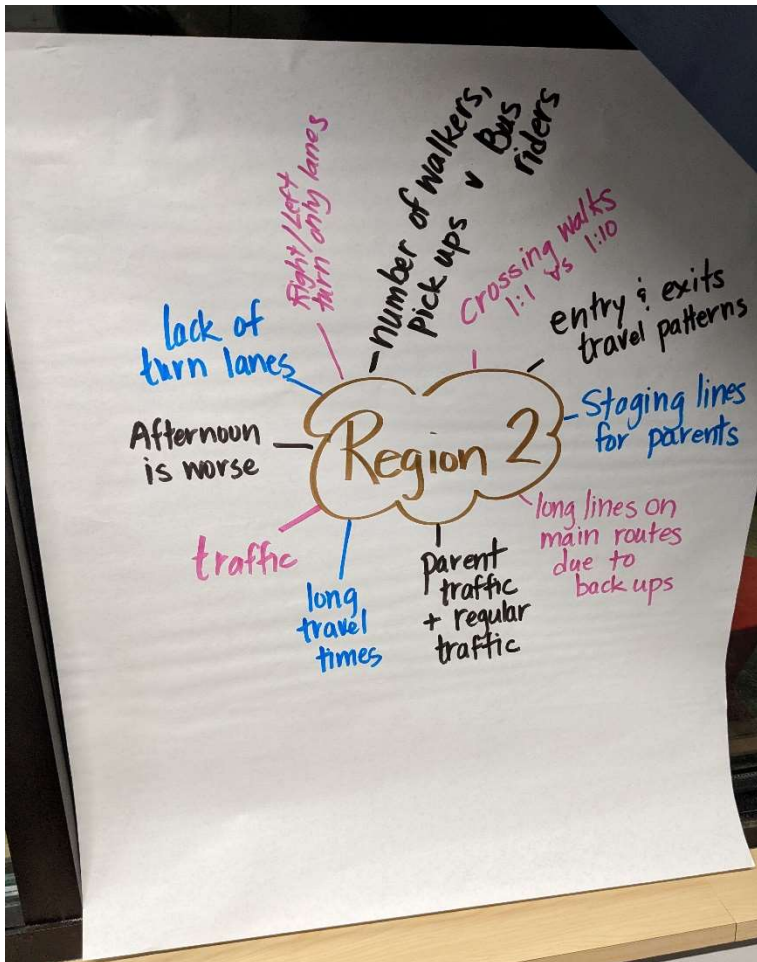 Right/Left
turn only lanes
number of walkers,
pick ups v Bus
riders
crossing walks
1:1 vs 1:10
entry & exits
travel patterns
Staging lines
for parents
long lines on
main routes
due to
back ups
parent
traffic
+ regular
traffic
long
travel
times
traffic
Afternoon
is worse
lack of
turn lanes
Region 2